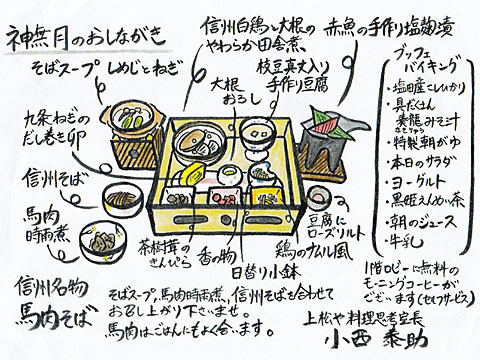 神無月のおしながき
信州白鶏と大根の
やわらか田舎煮、
赤魚の手作り塩麹漬
そばスープ しめじとねぎ
枝豆真丈入り
手作り豆腐
大根
おろし
九条ねぎの
だし巻き卵
信州そば
馬肉
時雨煮
茶樹茸の
きんぴら
香の物
日替り小鉢
鶏のナムル風
豆腐に
ローズソルト
ブッフェ
バイキング
・塩田産こしひかり
・具だくさん
みそ汁
・特製朝がゆ
・本日のサラダ
・ヨーグルト
・黒姫えんめい茶
・朝のジュース
・牛乳
信州名物
馬肉そば
そばスープ、馬肉時雨煮、信州そばを合わせて
お召し上がり下さいませ。
馬肉はごはんにもよく合います。
1階ロビーに無料の
モーニングコーヒーが
ございます(セルフサービス)
上松や 料理思考室長
小西 泰助